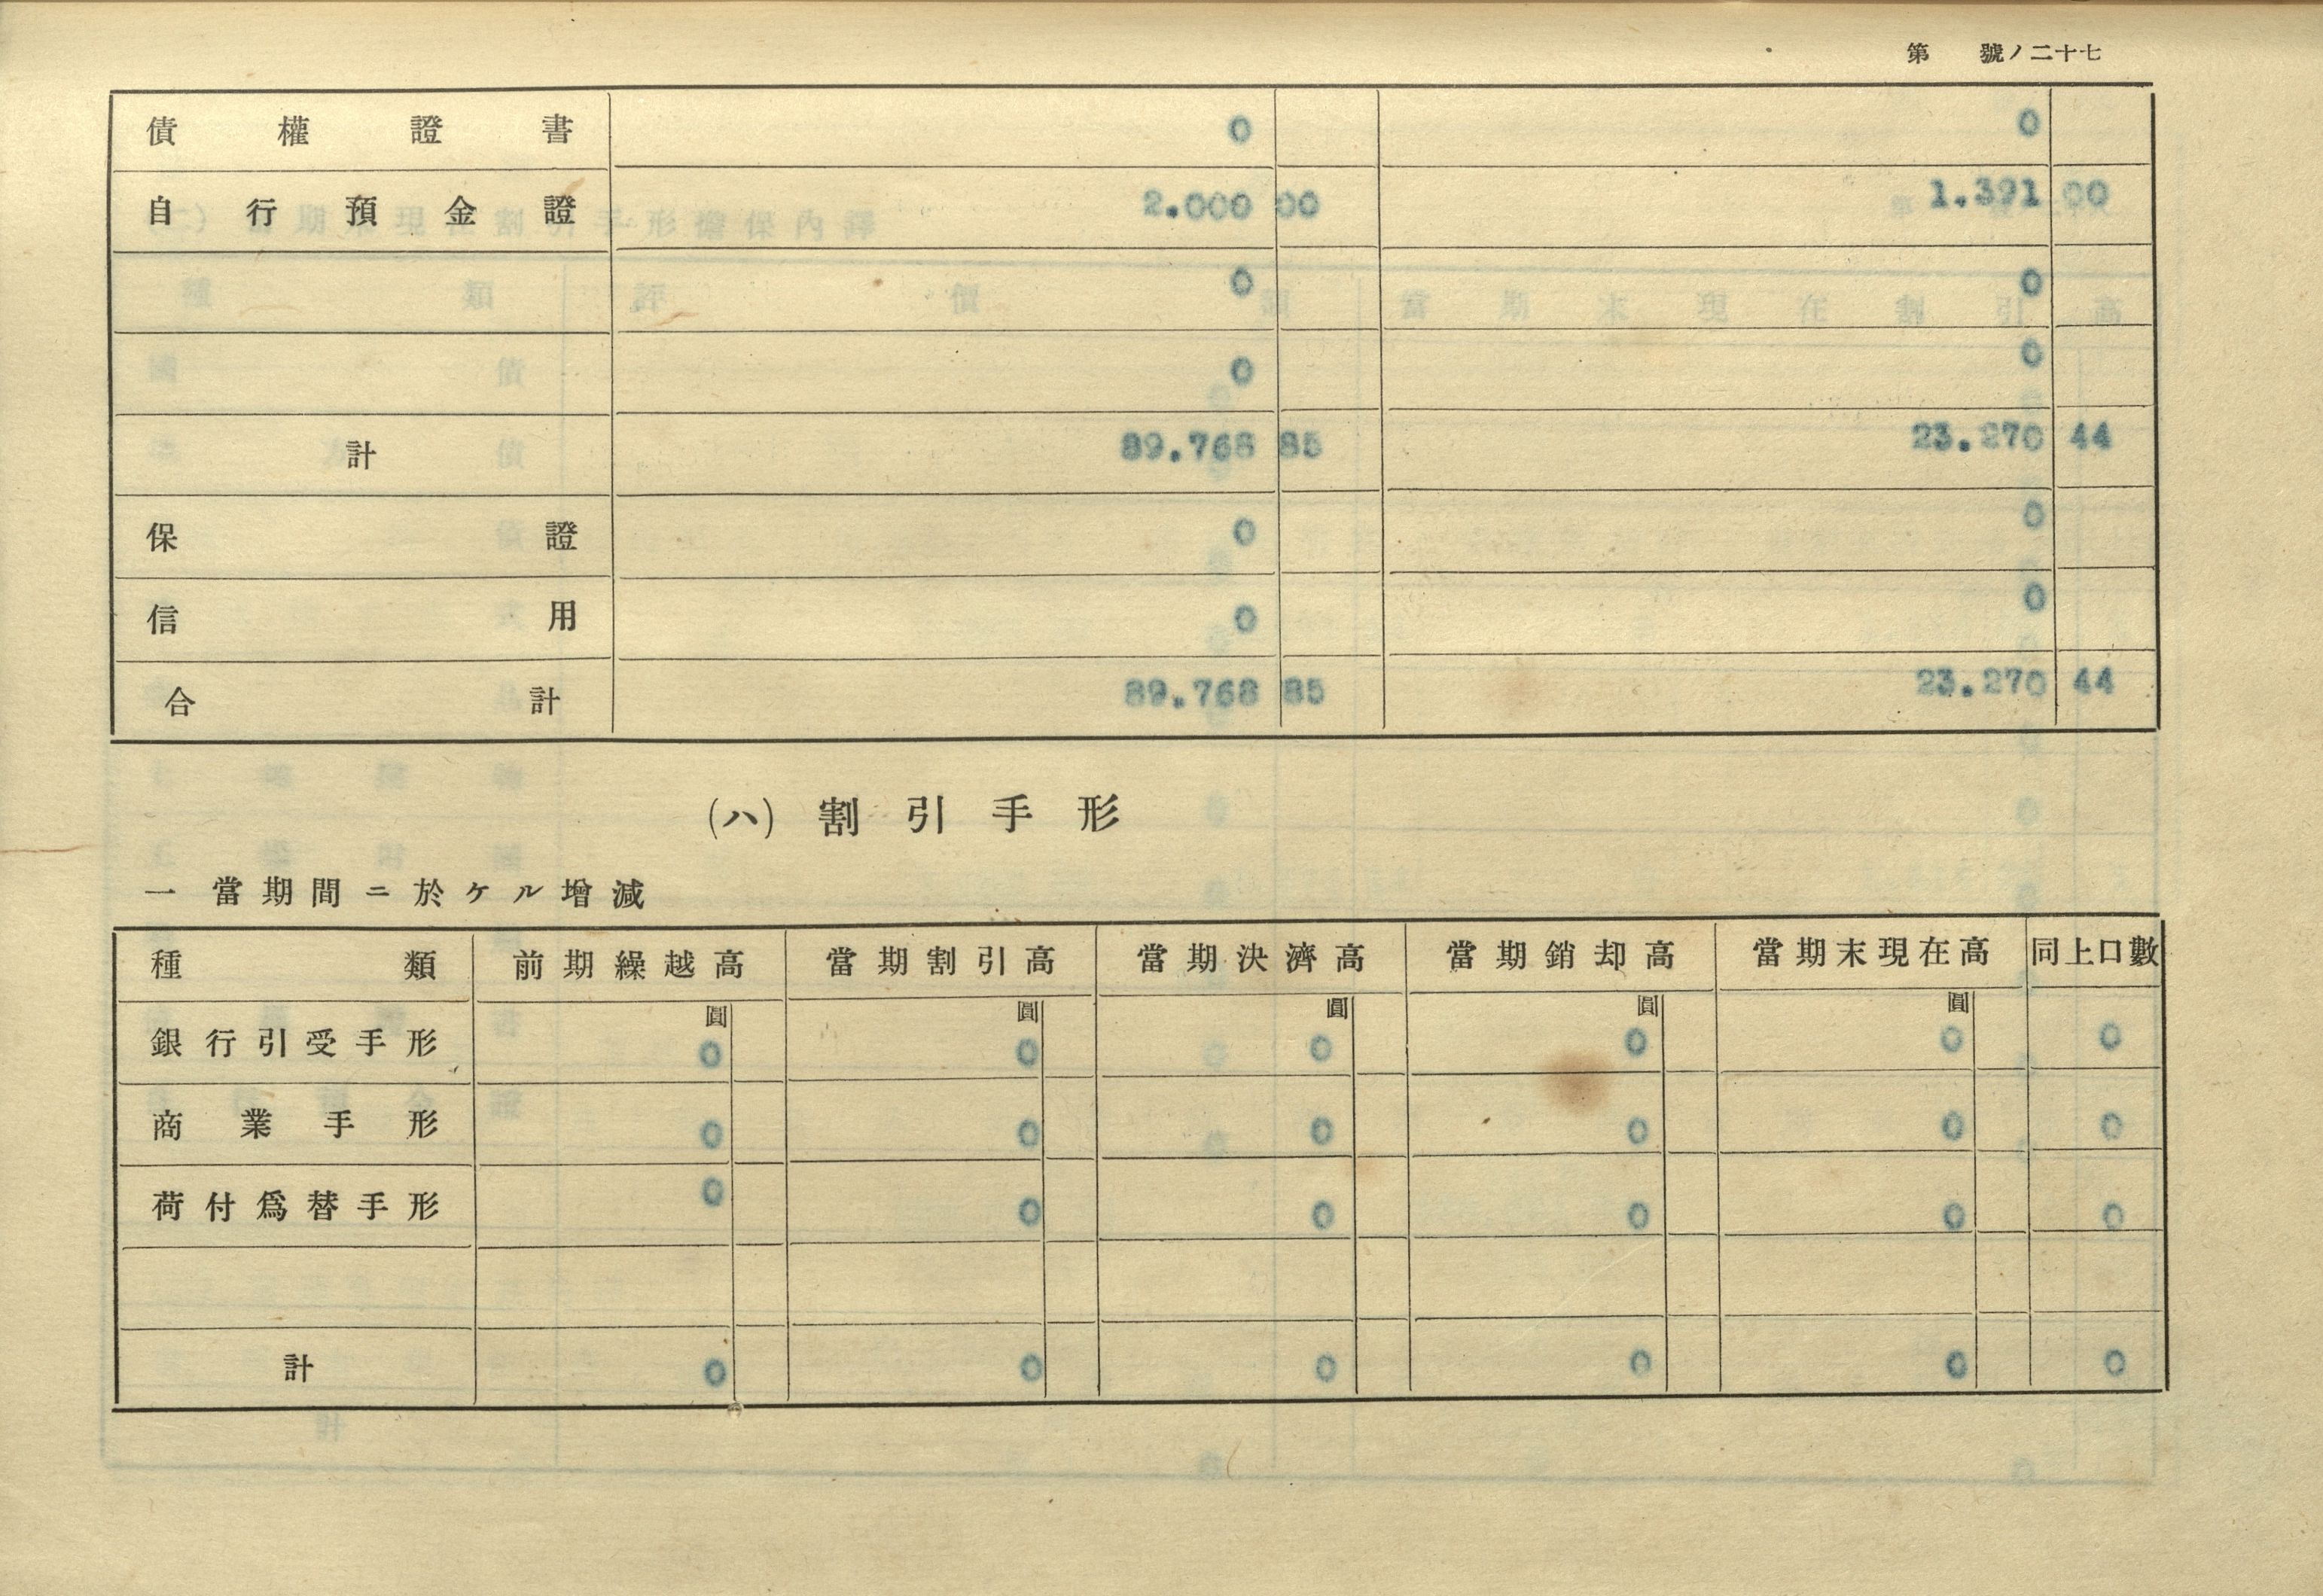 第　號ノ二十七
債權證書 0 0
自行預金證 2.000 00 1.391 00
0 0
0 0
計 89.768 85 23.270 44
保證 0 0
信用 0 0
合計 89.768 85 23.270 44
(ハ) 割引手形
一 當期間ニ於ケル增減
種類 前期繰越高 當期割引高 當期決濟高 當期銷却高 當期末現在高 同上口數
圓 圓 圓 圓 圓
銀行引受手形 0 0 0 0 0 0
商業手形 0 0 0 0 0 0
荷付爲替手形 0 0 0 0 0 0
計 0 0 0 0 0 0